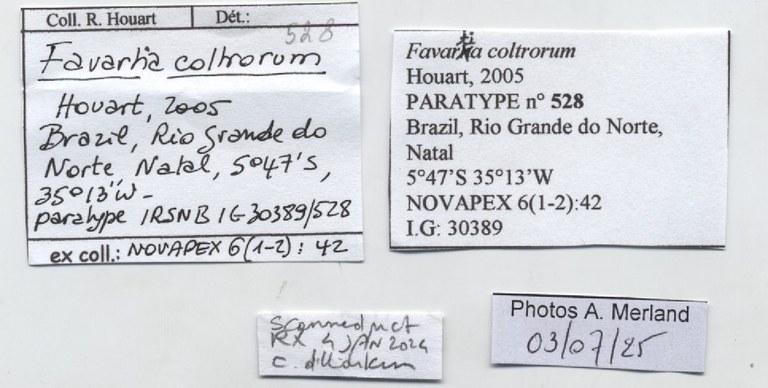 Coll. R. Houart Dét.:
528
Favartia coltrorum
Houart, 2005
Brazil, Rio Grande do
Norte, Natal, 5°47'S,
35°13'W -
paratype IRSNB IG 30389/528
ex coll.: NOVAPEX 6(1-2): 42
Favartia coltrorum
Houart, 2005
PARATYPE n° 528
Brazil, Rio Grande do Norte,
Natal
5°47'S 35°13'W
NOVAPEX 6(1-2):42
I.G: 30389
Scanned µct
RX 4 JAN 2024
C.
Photos A. Merland
03/07/25